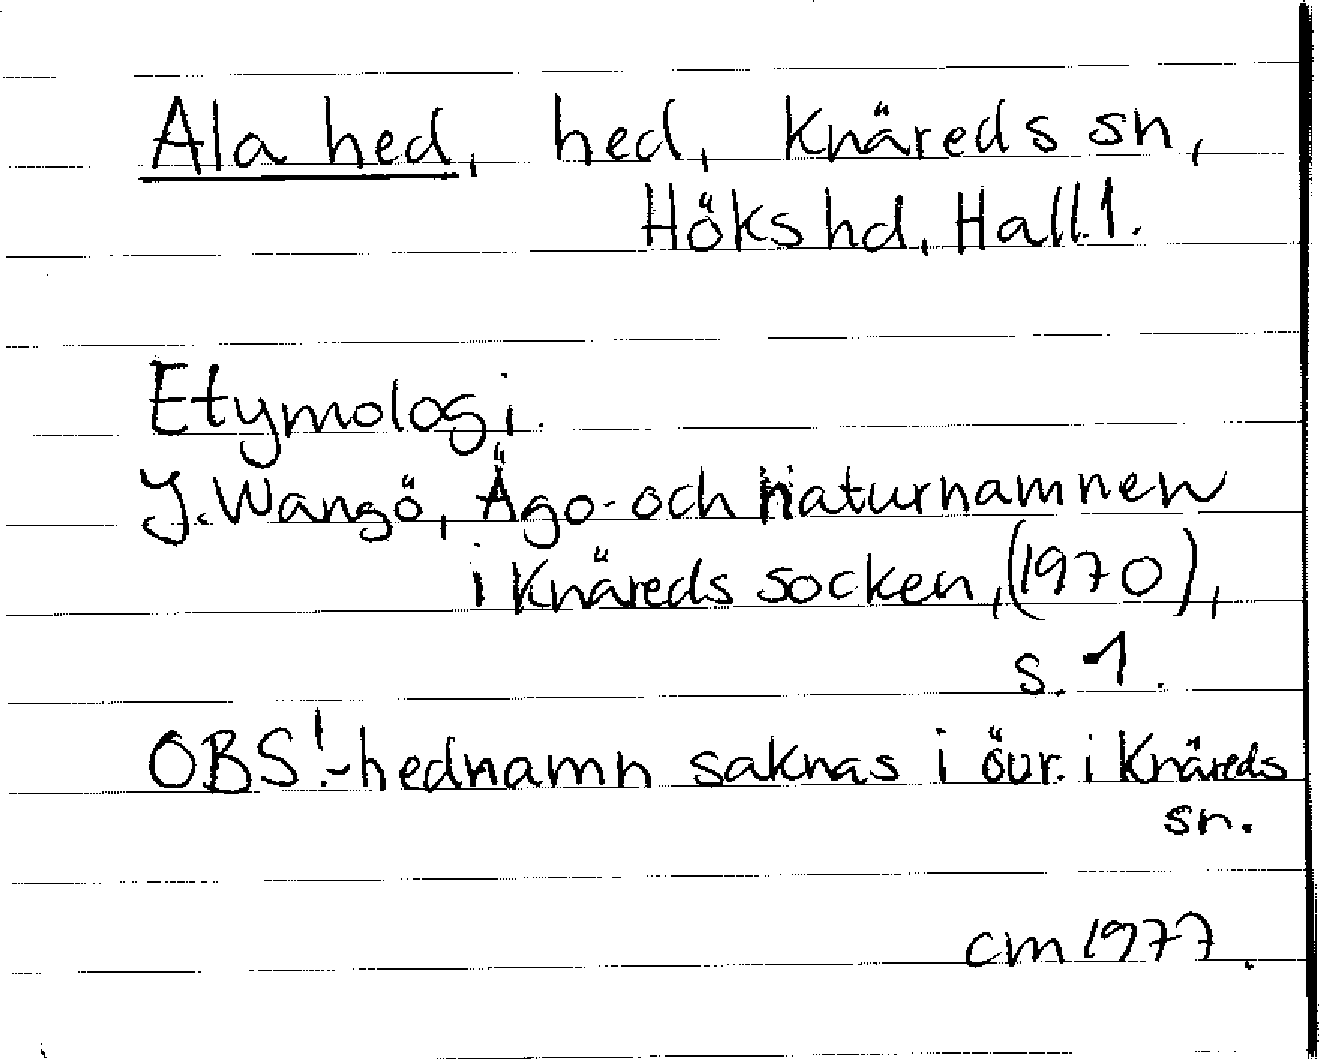 Ala hed, hed, Knäreds sn,
Höks hd, Hall.
Etymologi.
J. Wangö, Ägo- och naturnamnen
i Knäreds socken, (1970),
s. 1.
OBS! -hednamn saknas i övr. i Knäreds
sn.
cm 1977.